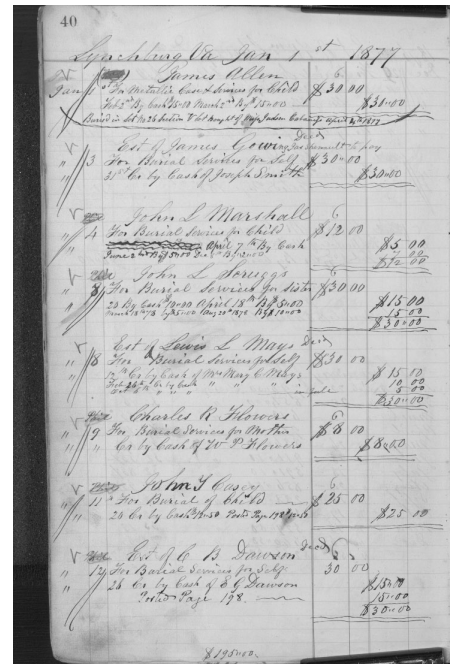 40
Lynchburg Va Jan 1st 1877
James Allen 6
Jan 1st For Metallic Case & Services for Child $30 00
Feb 2nd By Cash 15=00 March 2nd By 15=00 $30=00
Buried in lot No 26 Section V lot
Est of James Gowing Decd
" 3 For Burial Services for Self $30=00
31st Cr by Cash of Joseph Smith $30=00
John L Marshall 6
" 4 For Burial Services for Child $12 00
April 7th By Cash $5 00
June 2nd By $5=00 Dec By 2=00 7 00
$12 00
John L Scruggs 6
" 8 For Burial Services for Sister $30 00
23 By Cash 10=00 April 18th By 5=00 $15 00
March 18th 78 by 5=00 Aug 20th 1878 By 10=00 15 00
$30=00
Est of Lewis L Mays Decd
" 8 For Burial Services for Self $30 00
Cr by Cash of Mrs Mary C Mays $15 00
Feb 26th Cr by Cash " " " 10 00
" " " in full 5 00
$30=00
Charles R Flowers 6
" 9 For Burial Services for Mother $8 00
" Cr by Cash of W P Flowers $8=00
John T Casey 6
" 11 For Burial of Child $25 00
24 Cr by Cash 12=50 Posted Page 198 $25 00
Est of C B Dawson Decd 6
" 12 For Burial Services for Self 30 00
26 Cr by Cash of E G Dawson $15=00
Posted Page 198. 15=00
$30=00
$195=00